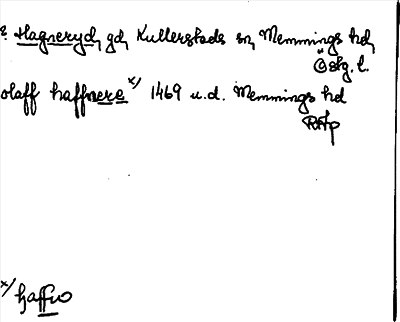 ? Hagneryd, gd, Kullerstads sn, Memmings hd,
Östg. l.
olaff haffnere x) 1469 u.d. Memmings hd
RAp
x) haffw